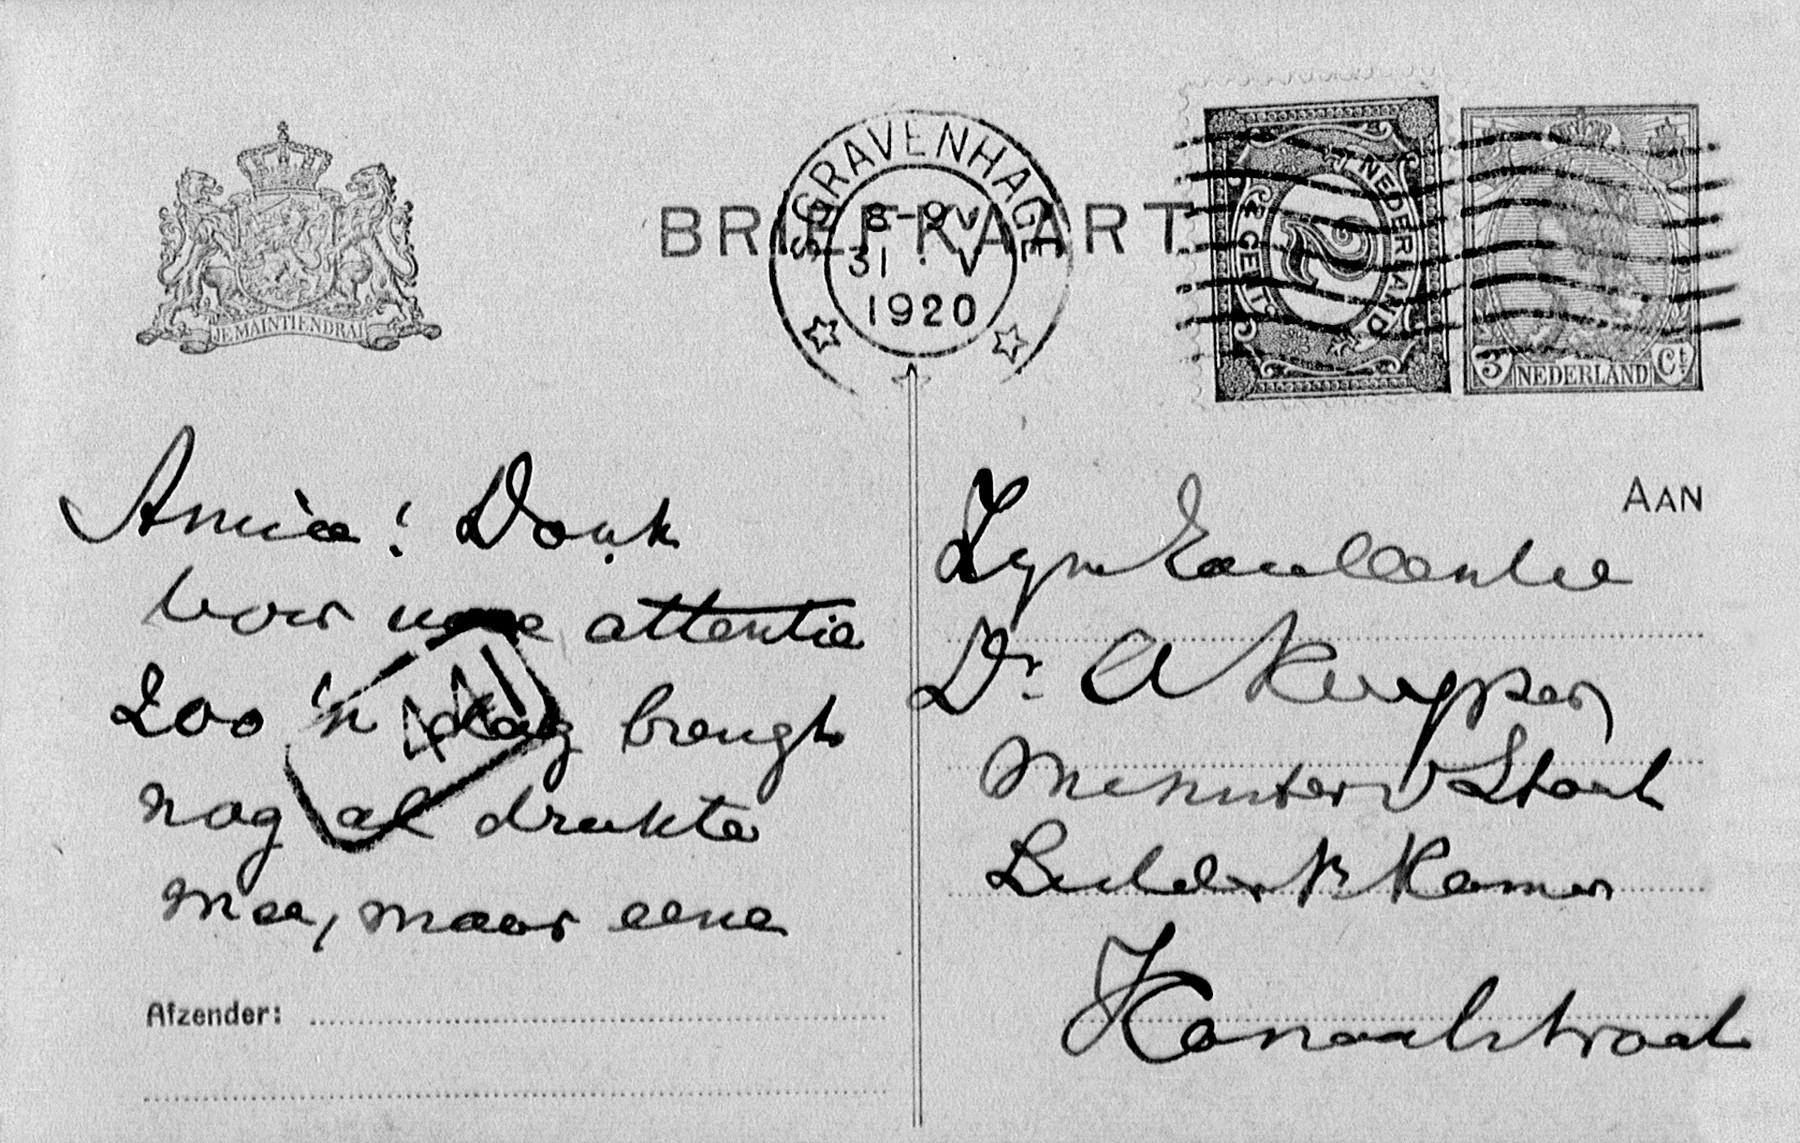 JE MAINTIENDRAI
BRIEFKAART
'S GRAVENHAGE
8-9 V
31 . V
1920
NEDERLAND
2
CENT
3 Ct
NEDERLAND
Amice! Dank
voor uwe attentie
Zoo 'n dag brengt
nog al drukte
mee, maar eene
Afzender:
AAN
Zijn Excellentie
Dr. A Kuyper
Minister v Staat
Lid der 1e Kamer
Kanaalstraat